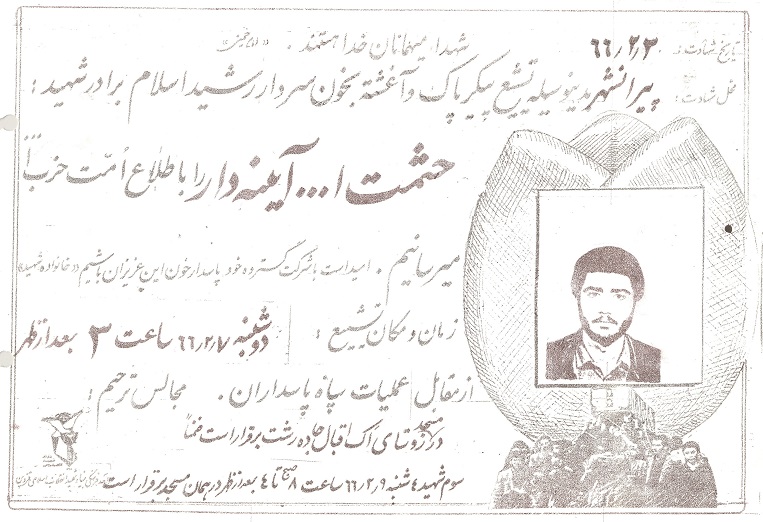 شهدا میهمانان خدا هستند. «امام خمینی»
تاریخ شهادت: ۶۶/۲/۳
محل شهادت: پیرانشهر
بدینوسیله تشییع پیکر پاک و آغشته بخون سردار رشید اسلام برادر شهید:
حشمت ا... آینه دار را باطلاع اُمّت حزب ا...
میرسانیم. امید است با شرکت گسترده خود پاسدار خون این عزیزان باشیم «خانواده شهید»
زمان و مکان تشییع: دوشنبه ۶۶/۲/۷ ساعت ۳ بعد از ظهر
از مقابل عملیات سپاه پاسداران. مجالس ترحیم:
در مسجد روستای اک اقبال جاده رشت برقرار است ضمناً
سوم شهید ۴ شنبه ۶۶/۲/۹ ساعت ۸ صبح تا ۴ بعد از ظهر در همان مسجد برقرار است